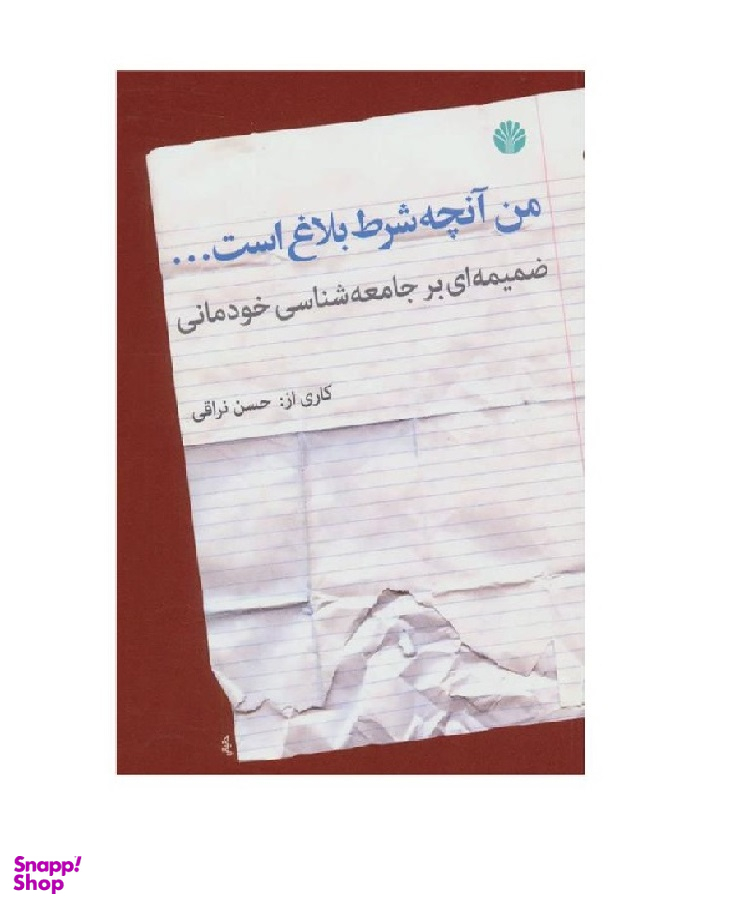 من آنچه شرط بلاغ است...
ضمیمه‌ای بر جامعه‌شناسی خودمانی
کاری از: حسن نراقی
Snapp!
Shop